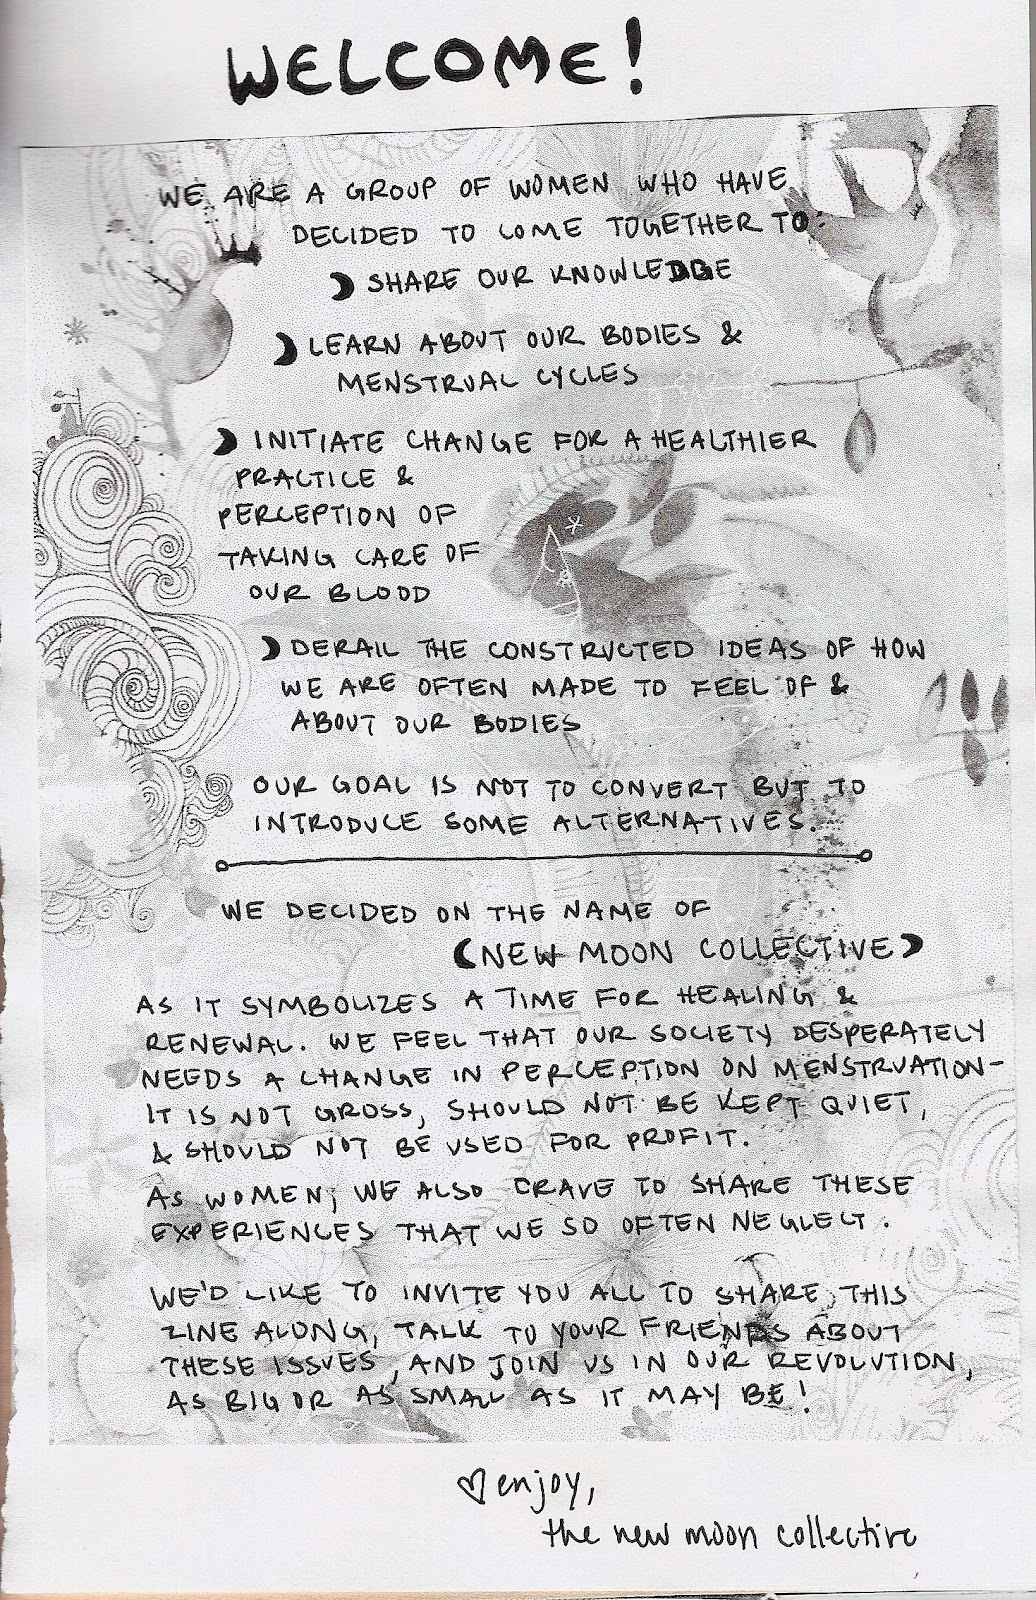 WELCOME!
WE ARE A GROUP OF WOMEN WHO HAVE
DECIDED TO COME TOGETHER TO:
SHARE OUR KNOWLEDGE
LEARN ABOUT OUR BODIES &
MENSTRUAL CYCLES
INITIATE CHANGE FOR A HEALTHIER
PRACTICE &
PERCEPTION OF
TAKING CARE OF
OUR BLOOD
DERAIL THE CONSTRUCTED IDEAS OF HOW
WE ARE OFTEN MADE TO FEEL OF &
ABOUT OUR BODIES
OUR GOAL IS NOT TO CONVERT BUT TO
INTRODUCE SOME ALTERNATIVES.
WE DECIDED ON THE NAME OF
NEW MOON COLLECTIVE
AS IT SYMBOLIZES A TIME FOR HEALING &
RENEWAL. WE FEEL THAT OUR SOCIETY DESPERATELY
NEEDS A CHANGE IN PERCEPTION ON MENSTRUATION-
IT IS NOT GROSS, SHOULD NOT BE KEPT QUIET,
& SHOULD NOT BE USED FOR PROFIT.
AS WOMEN, WE ALSO CRAVE TO SHARE THESE
EXPERIENCES THAT WE SO OFTEN NEGLECT.
WE'D LIKE TO INVITE YOU ALL TO SHARE THIS
ZINE ALONG, TALK TO YOUR FRIENDS ABOUT
THESE ISSUES, AND JOIN US IN OUR REVOLUTION,
AS BIG OR AS SMALL AS IT MAY BE!
♡ enjoy,
the new moon collective